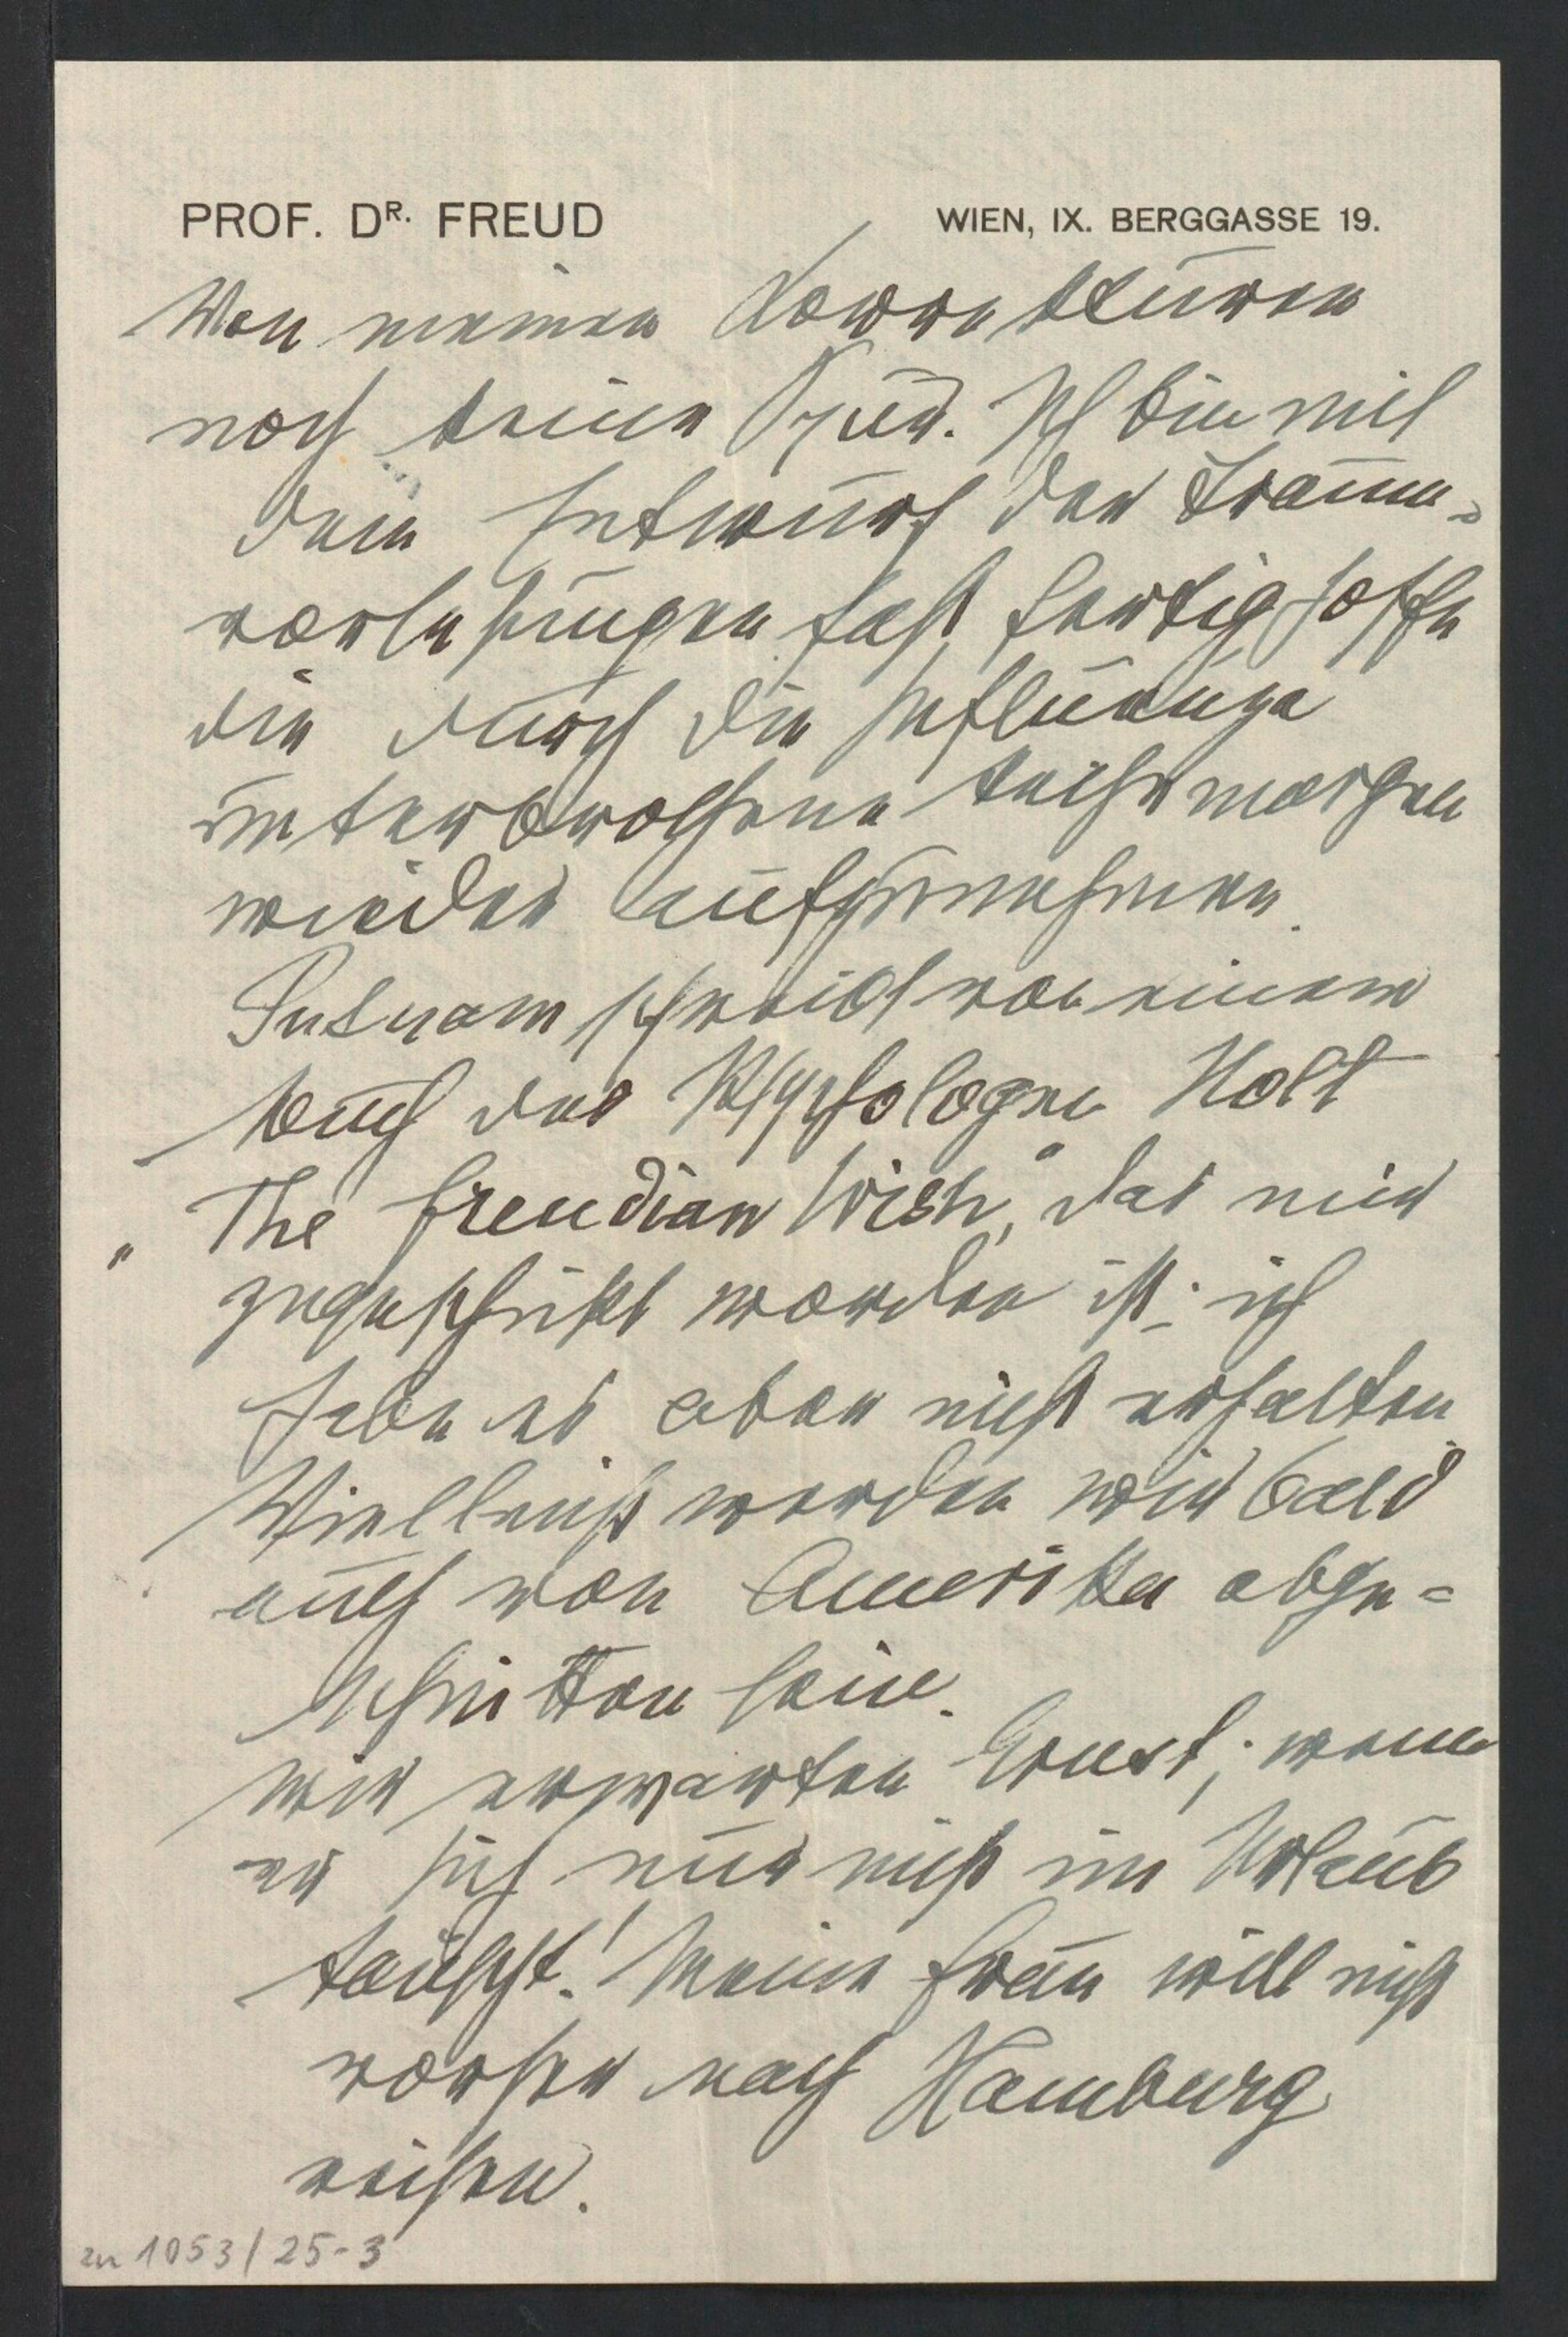 PROF. DR. FREUD
WIEN, IX. BERGGASSE 19.
Von meinen Korrekturen
noch keine Spur. Ich bin mit
dem Entwurf der Traum=
vorlesungen fast fertig, hoffe
die durch die Influenza
unterbrochene Reihe morgen
wieder aufzunehmen.
Putnam schreibt von einem
Buch des Psychologen Holt
„The freudian Wish", das mir
zugeschickt worden ist; ich
habe es aber nicht erhalten.
Vielleicht werden wir bald
auch von Amerika abge=
schnitten sein.
Wir erwarten Ernst; wenn
er sich nur nicht im Urlaub
täuscht! Meine Frau will nicht
vorher nach Hamburg
reisen.
zu 1053/25-3